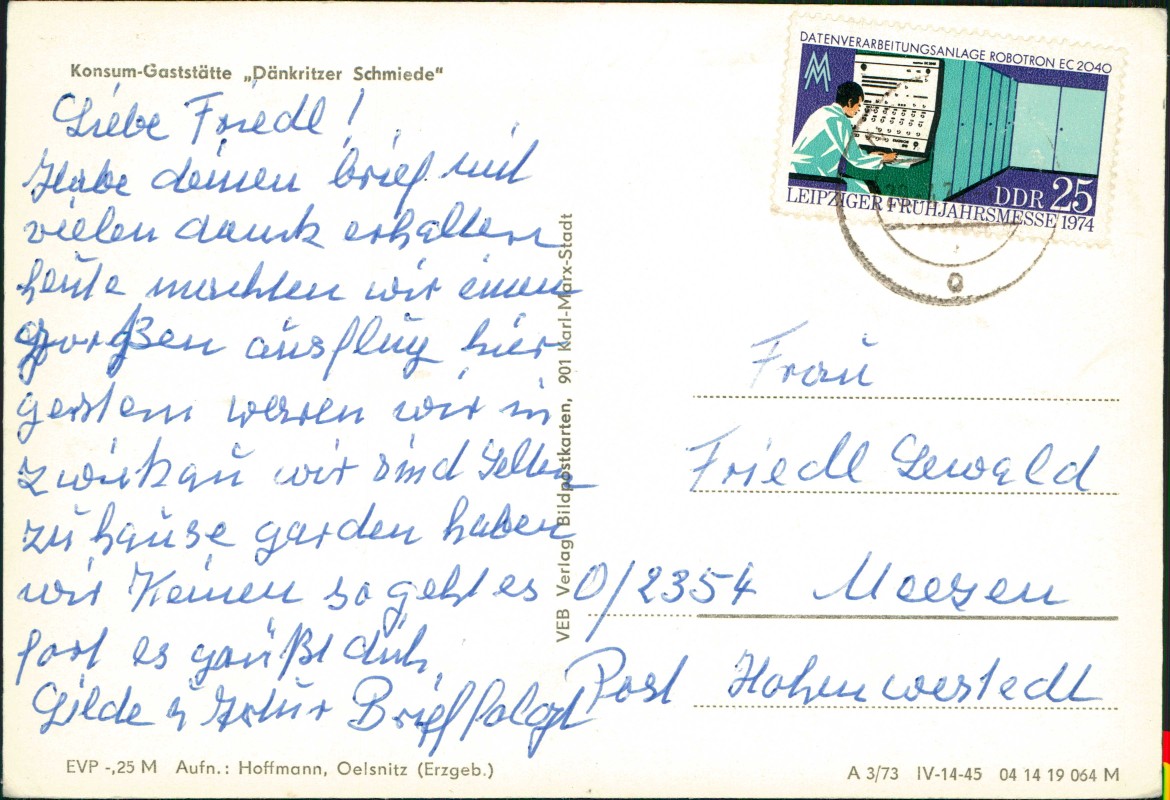 Konsum-Gaststätte „Dänkritzer Schmiede"
Liebe Friedl!
Habe deinen brief mit
vielen dank erhalten
heute machten wir einen
großen ausflug hier
gestern waren wir in
zwickau wir sind selten
zuhause garden haben
wir Keinen so geht es
fort es grüßt dich
Gilde u Artur Brief folgt
EVP -,25 M Aufn.: Hoffmann, Oelsnitz (Erzgeb.)
VEB Verlag Bildpostkarten, 901 Karl-Marx-Stadt
DATENVERARBEITUNGSANLAGE ROBOTRON EC 2040
MM
DDR 25
LEIPZIGER FRÜHJAHRSMESSE 1974
Frau
Friedl Lewald
D/2354 Meezen
Post Hohenwestedt
A 3/73 IV-14-45 04 14 19 064 M